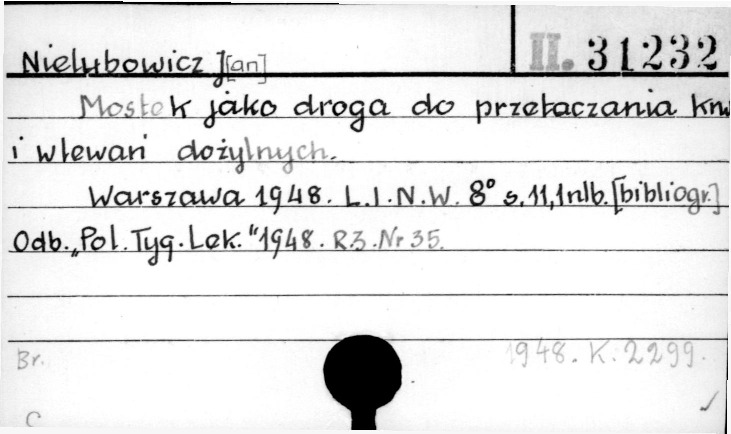 II. 31232
Nielubowicz J[an]
Mostek jako droga do przetaczania krw
i wlewań dożylnych.
Warszawa 1948. L.I.N.W. 8° s. 11, 1 nlb. [bibliogr.]
Odb. „Pol. Tyg. Lek." 1948. R.3. Nr 35.
Br. 1948. K. 2299.
C